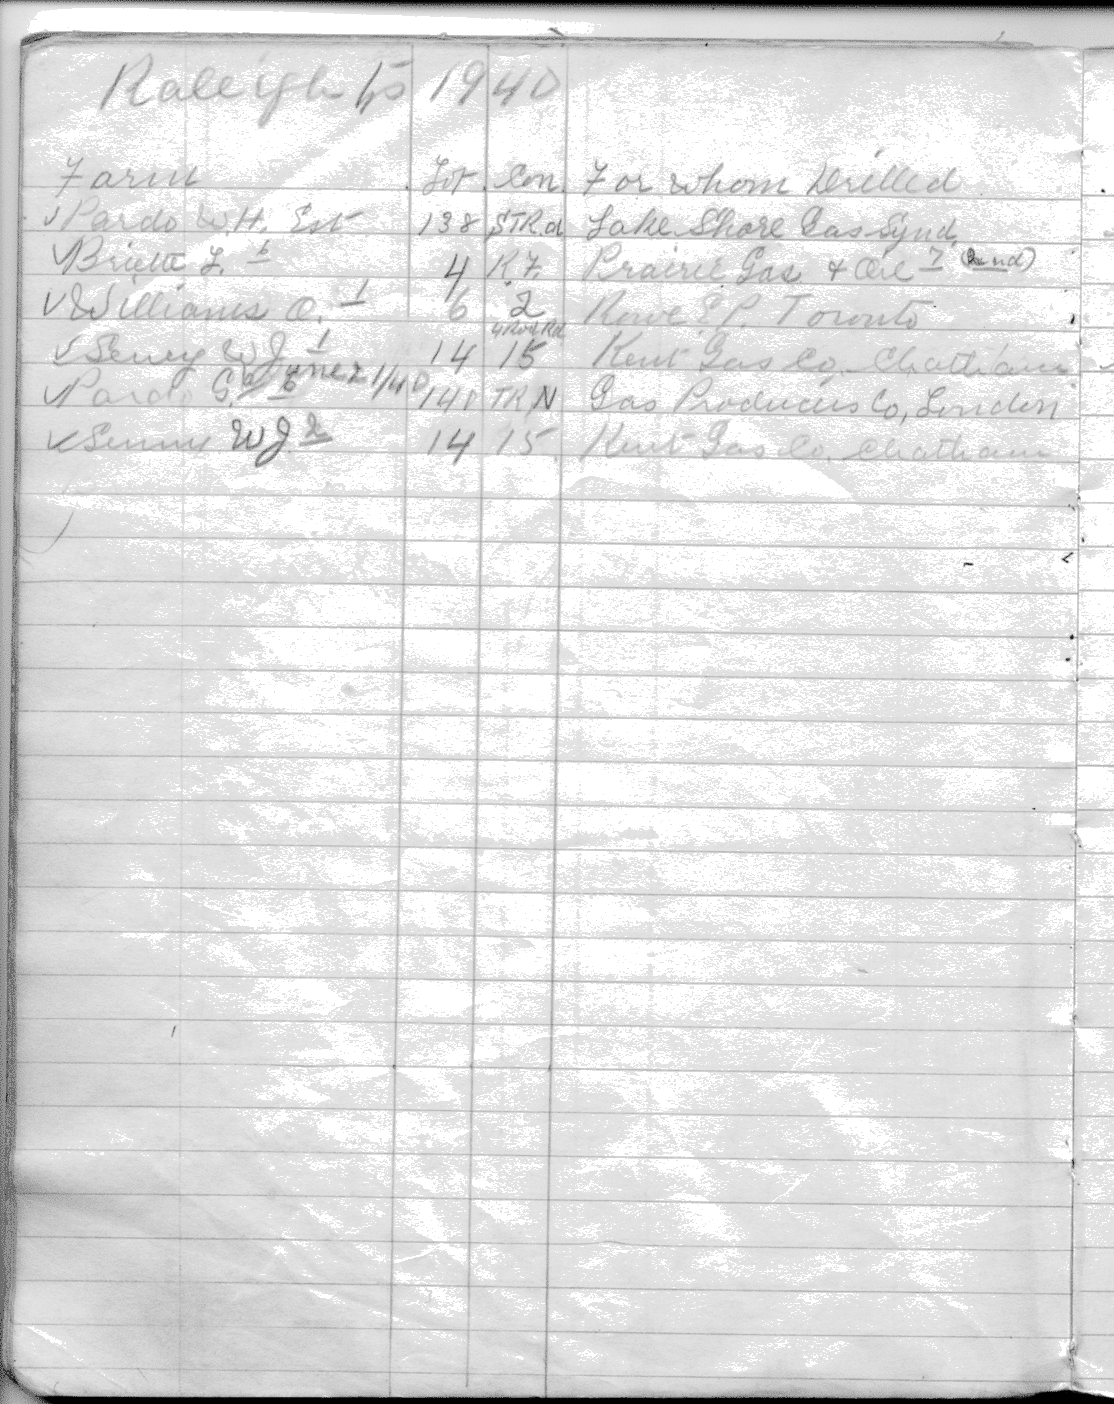 Raleigh Tp 1940
Farm Lot Con. For whom Drilled
✓ Pardo W.H. Est 138 STRd Lake Shore Gas Synd.
✓ L. 4 RF Prairie Gas & Oil 7 (2nd)
✓ Williams O. 1 6 2 Rowe E.P. Toronto
4 Rod Rd
✓ W J 1 14 15 Kent Gas Co. Chatham
✓ Pardo 140 TR N Gas Producers Co, London
✓ W J 2 14 15 Kent Gas Co. Chatham